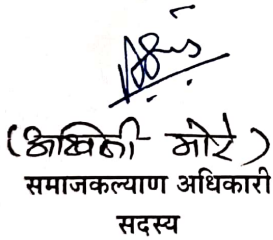 (अश्विनी मोरे)
समाजकल्याण अधिकारी
सदस्य